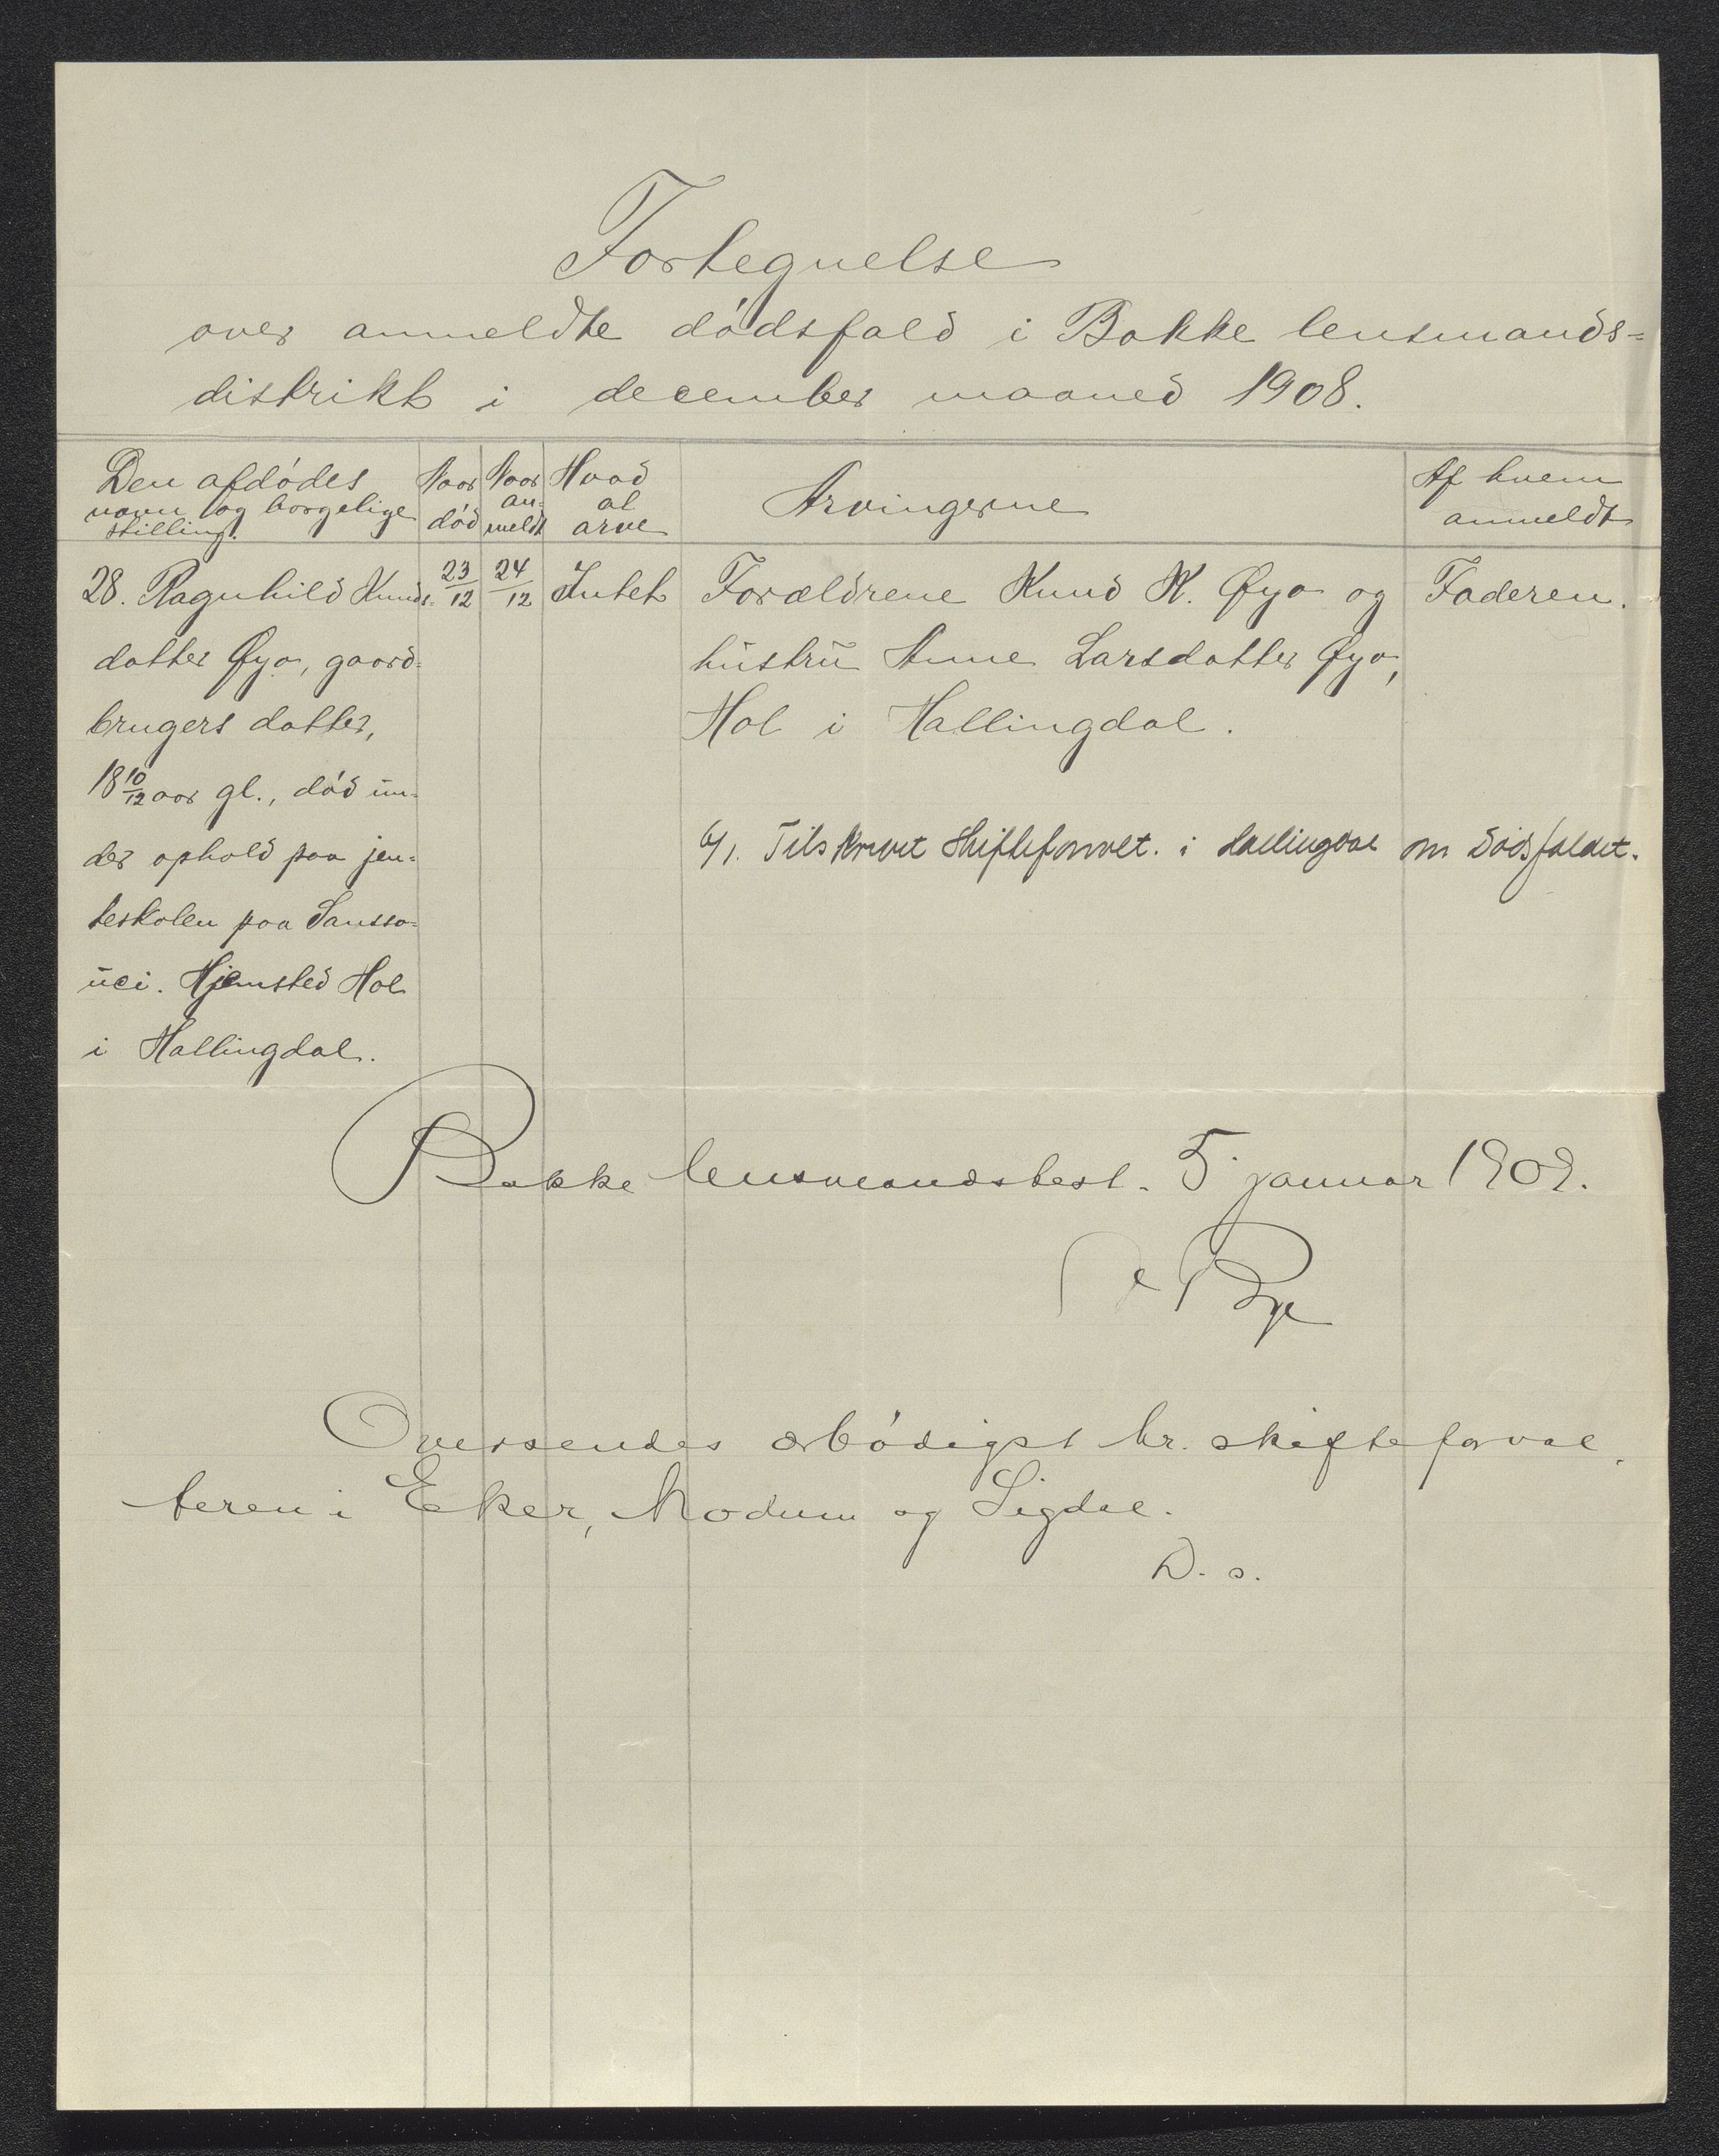 Fortegnelse
over anmeldte dödsfald i Bakke lensmands=
distrikt i december maaned 1908.
Den afdödes
navn og borgelige
stilling.
Naar
död
Naar
an-
meldt
Hvad
at
arve
Arvingerne
Af hvem
anmeldt
28. Ragnhild Knuds=
datter Øya, gaard=
brugers datter,
18 10/12 aar gl., död un=
der ophold paa jen=
teskolen paa Sansso=
uci. Hjemsted Hol
i Hallingdal.
23/12
24/12
Intet
Forældrene Knud K. Øya og
hustru Anne Larsdatter Øya,
Hol i Hallingdal.
Faderen.
6/1. Tilskrevet skifteforvalt. i Hallingdal om dödsfaldet.
Bakke lensmandsbest. 5 januar 1909.
Bye
Oversendes ærbödigst hr. skifteforval
teren i Eker, Modum og Sigdal.
D. s.